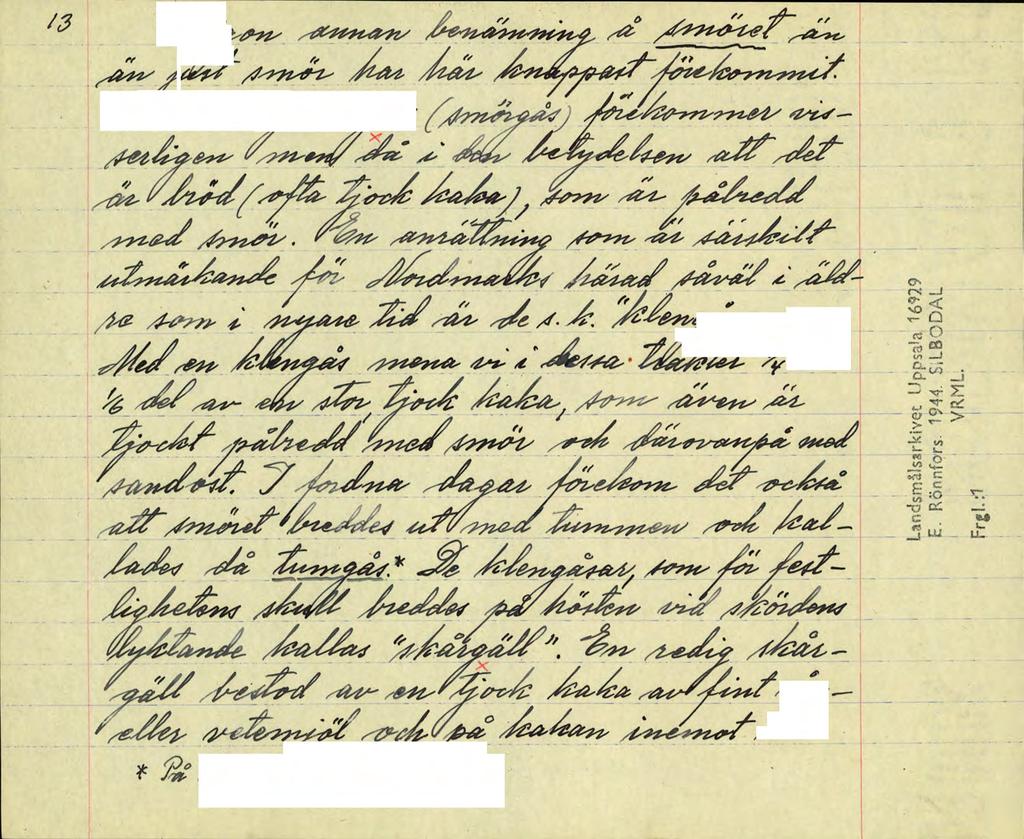 13
annan benämning å smöret än
än just smör har här knappast förekommit.
(smörgås) förekommer vis-
serligen men då i den betydelsen att det
är bröd (ofta tjock kaka), som är påbredd
med smör. En anrättning som är särskilt
utmärkande för Nordmarks härad såväl i äld-
re som i nyare tid är de s.k.
Med en klengås mena vi i dessa trakter 1/4
1/6 del av en stor, tjock kaka, som även är
tjockt påbredd med smör och därovanpå med
sandost. I fordna dagar förekom det också
att smöret breddes ut med tummen och kal-
lades då tumgås.* De klengåsar, som för fest-
lighetens skull breddes på hösten vid skördens
lyktande kallas "skårgäll". En redig skår-
gäll bestod av en tjock kaka av fint
eller vetemjöl och på kakan inemot
* På
Landsmålsarkivet Uppsala 16929
E. Rönnfors. 1944. SILBODAL
VRML.
Frgl.:1